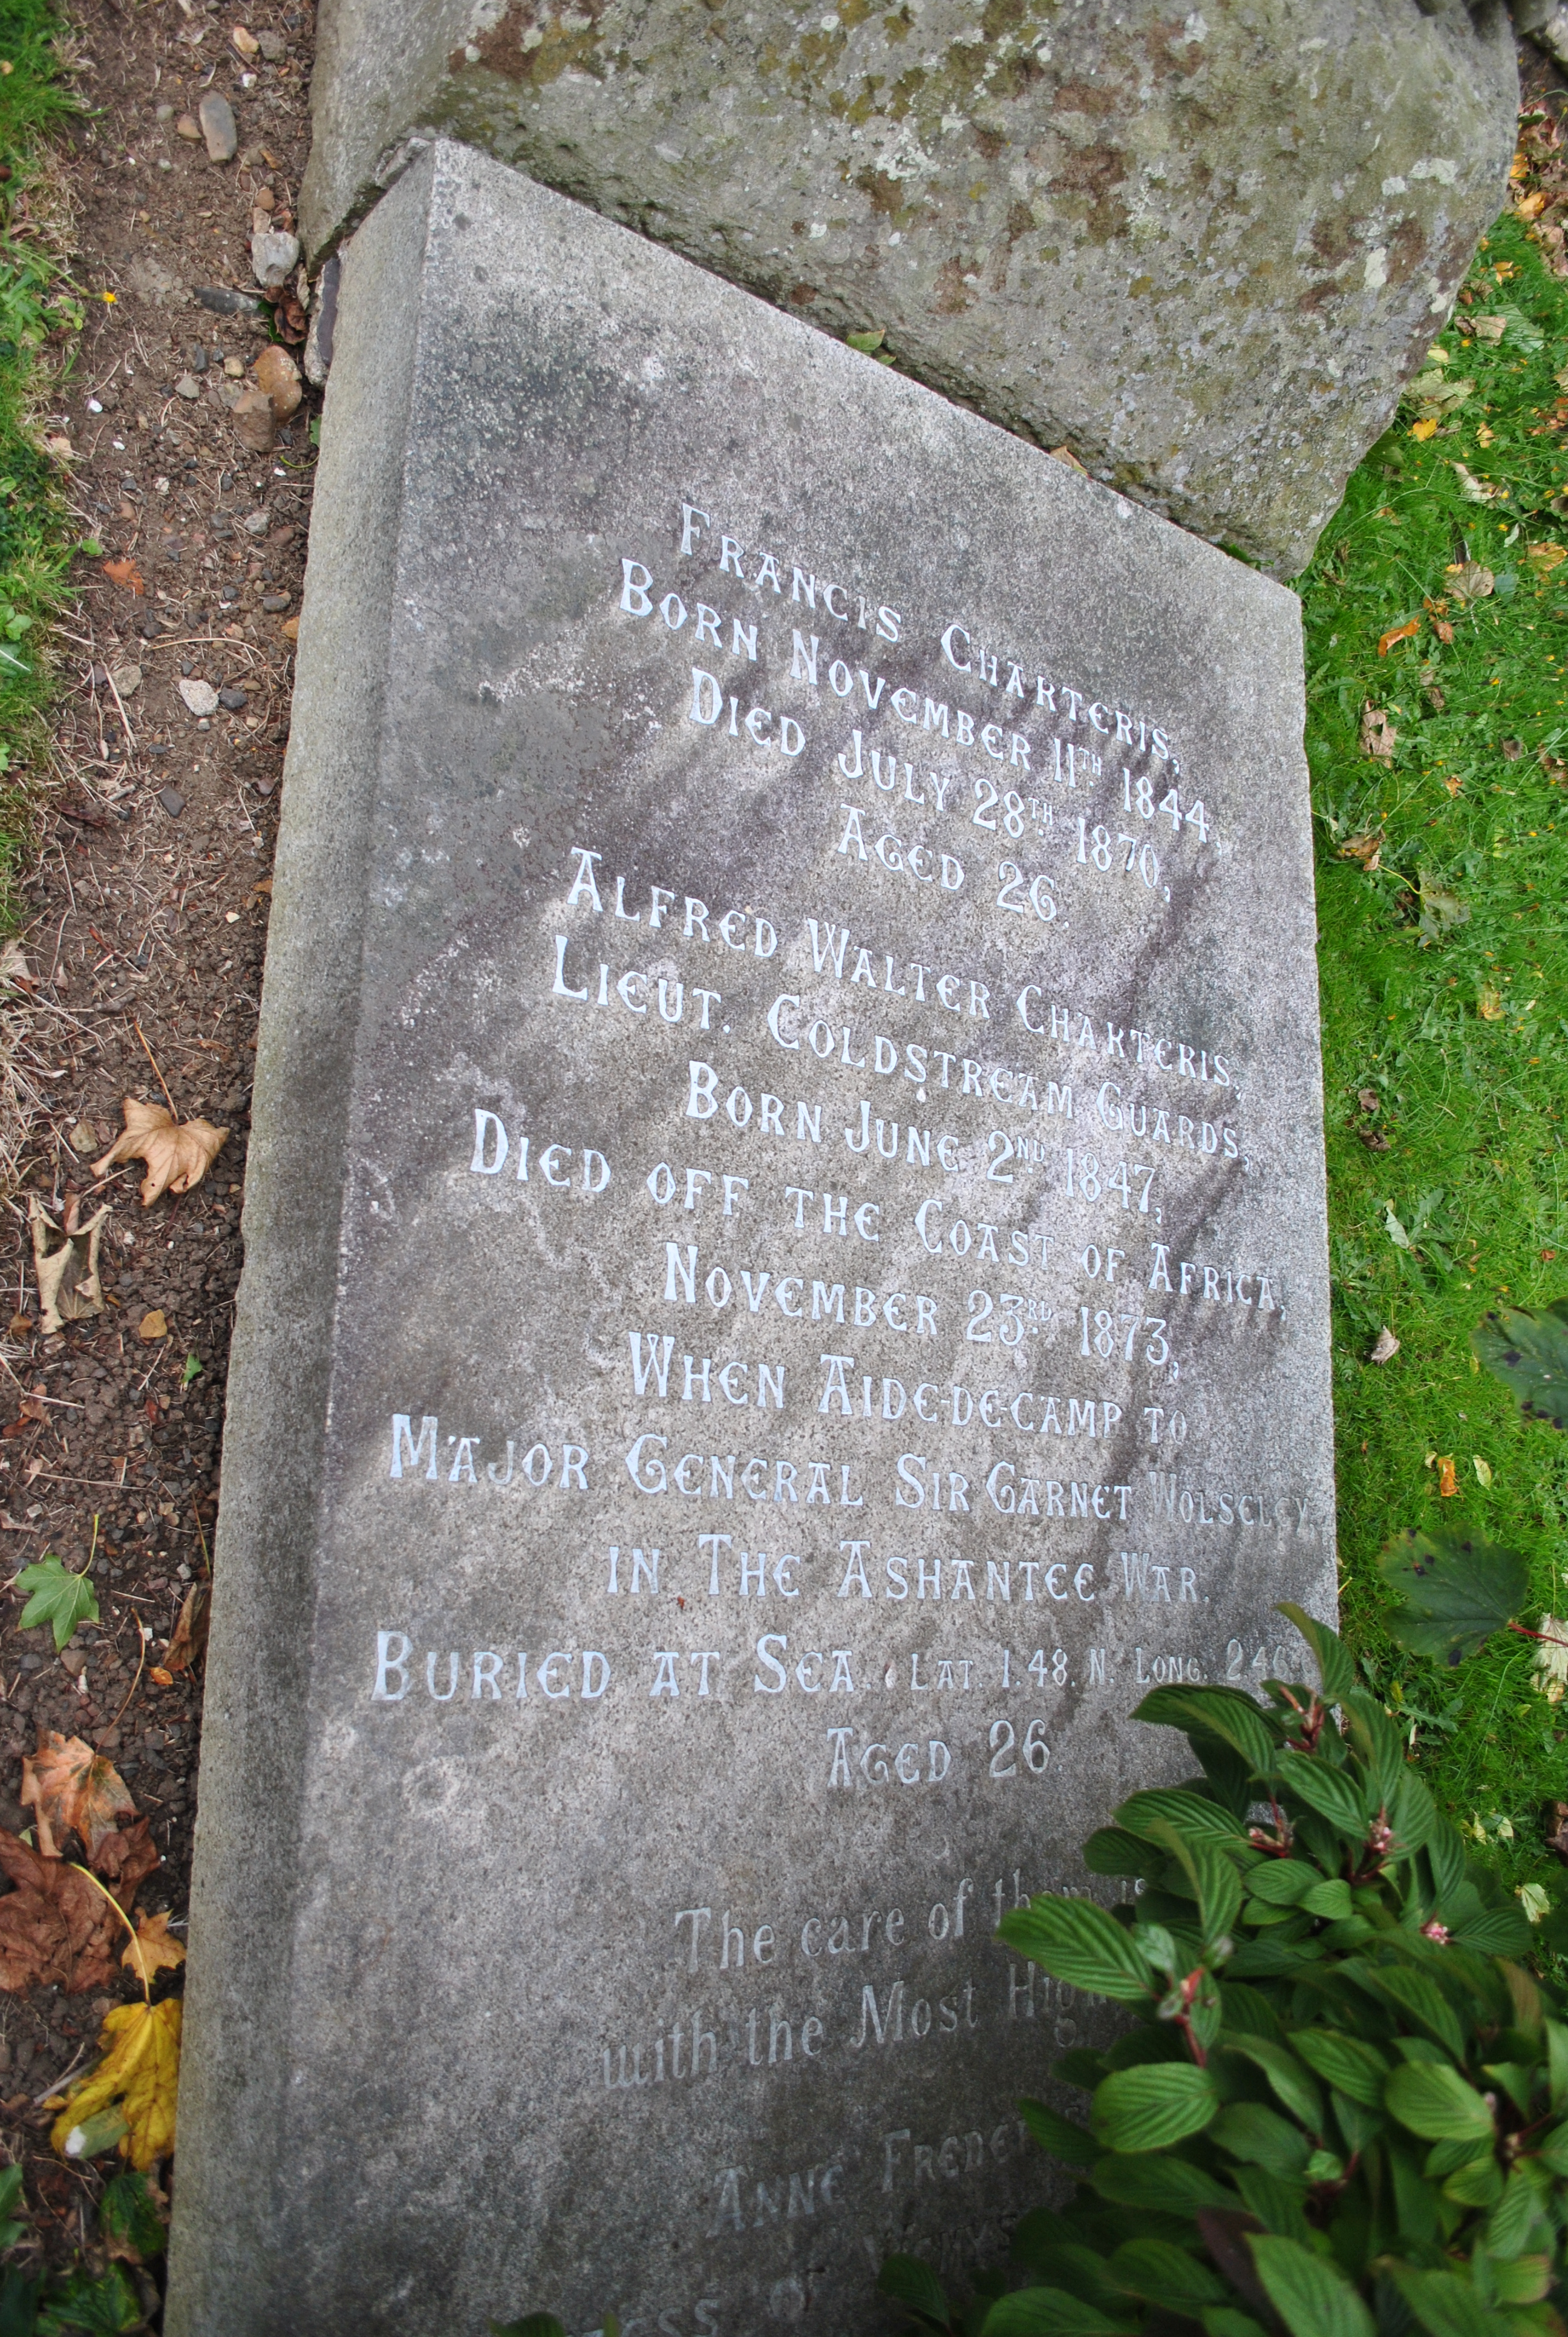 Francis Charteris,
Born November 11th 1844,
Died July 28th 1870,
Aged 26.
Alfred Walter Charteris,
Lieut. Coldstream Guards,
Born June 2nd 1847,
Died off the Coast of Africa,
November 23rd 1873,
When Aide-de-camp to
Major General Sir Garnet Wolseley,
in The Ashantee War.
Buried at Sea. Lat. 1.48. N. Long. 2.46
Aged 26.
The care of them is
with the Most High
Anne
of